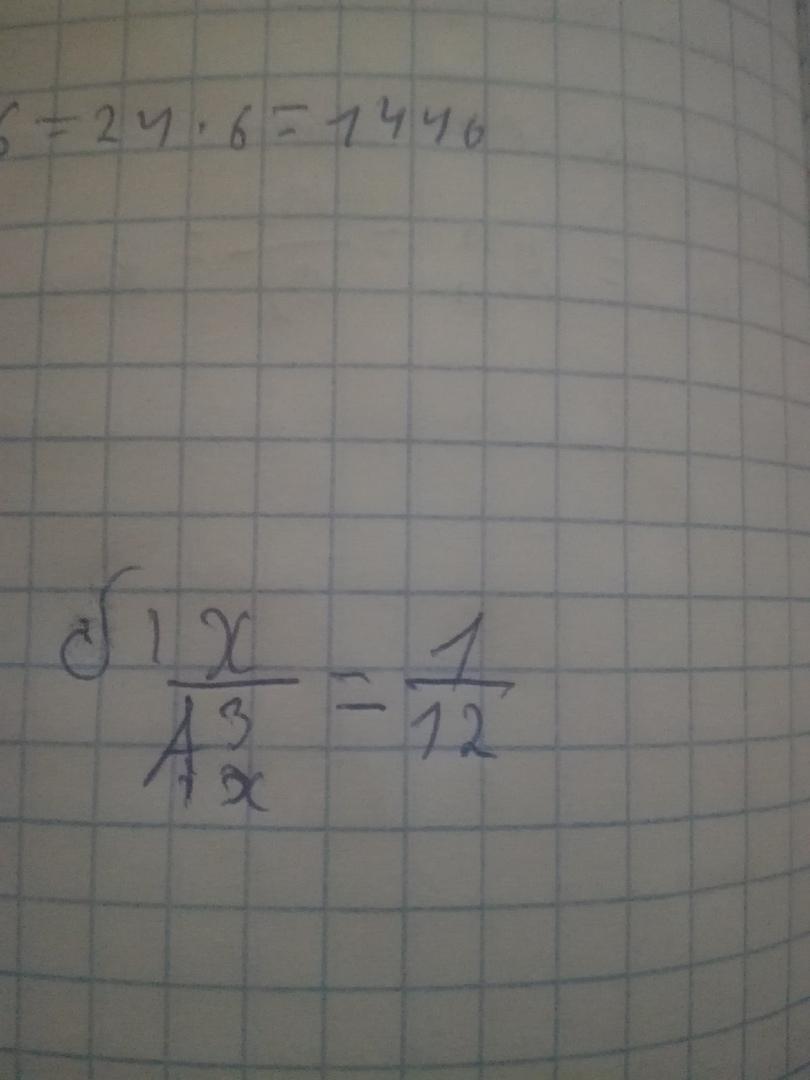 6 = 24 · 6 = 1440
б) x / A³ₓ = 1 / 12